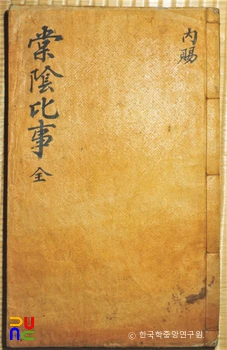 內賜
棠陰比事 全
PUNG
© 한국학중앙연구원